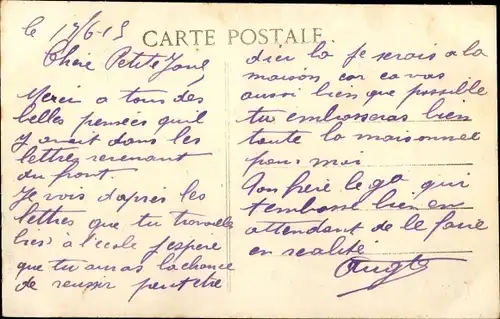 le 17/6-15
CARTE POSTALE
Chère Petite
Merci a tous des
belles pensées quil
y avait dans les
lettres revenant
du front.
Je vois d'après les
lettres que tu travailles
bien à l'école j'espere
que tu auras la chance
de reussir peut etre
dici la je serais a la
maison car ca va
aussi bien que possible
tu embrasseras bien
toute la maisonnee
pour moi
Ton frère le qui
t'embrasse bien en
attendant de le faire
en realité